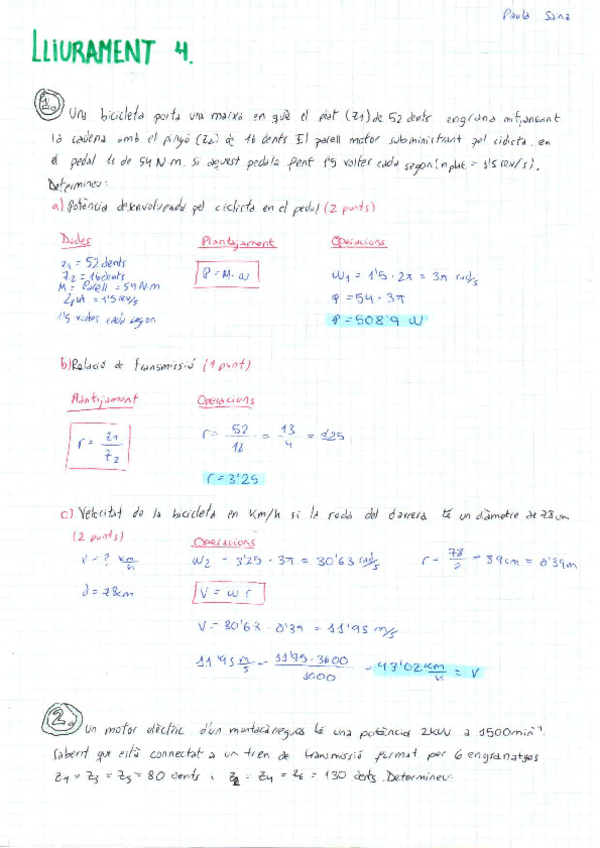 Paula Sanz
LLIURAMENT 4.
1.
Una bicicleta porta una marxa en què el plat (Z1) de 52 dents engrana mitjançant
la cadena amb el pinyó (Z2) de 16 dents. El parell motor subministrat pel ciclista en
el pedal és de 54 N·m. Si aquest pedala fent 1'5 voltes cada segon (n plat = 1'5 rev/s).
Determineu:
a) Potència desenvolupada pel ciclista en el pedal (2 punts)
Dades Plantejament Operacions
Z1 = 52 dents
Z2 = 16 dents
M = Parell = 54 N·m
Zplat = 1'5 rev/s
1'5 voltes cada segon
P = M · ω
ω1 = 1'5 · 2π = 3π rad/s
P = 54 · 3π
P = 508'9 W
b) Relació de transmissió (1 punt)
Plantejament Operacions
r = Z1/Z2
r = 52/16 = 13/4 = 3'25
r = 3'25
c) Velocitat de la bicicleta en Km/h si la roda del darrera té un diàmetre de 78 cm
(2 punts)
Operacions
V = ? Km/h
ω2 = 3'25 · 3π = 30'63 rad/s
r = 78/2 = 39cm = 0'39m
d = 78cm
V = ω r
V = 30'63 · 0'39 = 11'95 m/s
11'95 m/s = 11'95·3600/1000 = 43'02 Km/h = V
2.
Un motor elèctric d'un muntacàrregues té una potència 2KW a 1500min⁻¹.
Sabent que està connectat a un tren de transmissió format per 6 engranatges
Z1 = Z3 = Z5 = 80 dents i Z2 = Z4 = Z6 = 130 dents. Determineu: